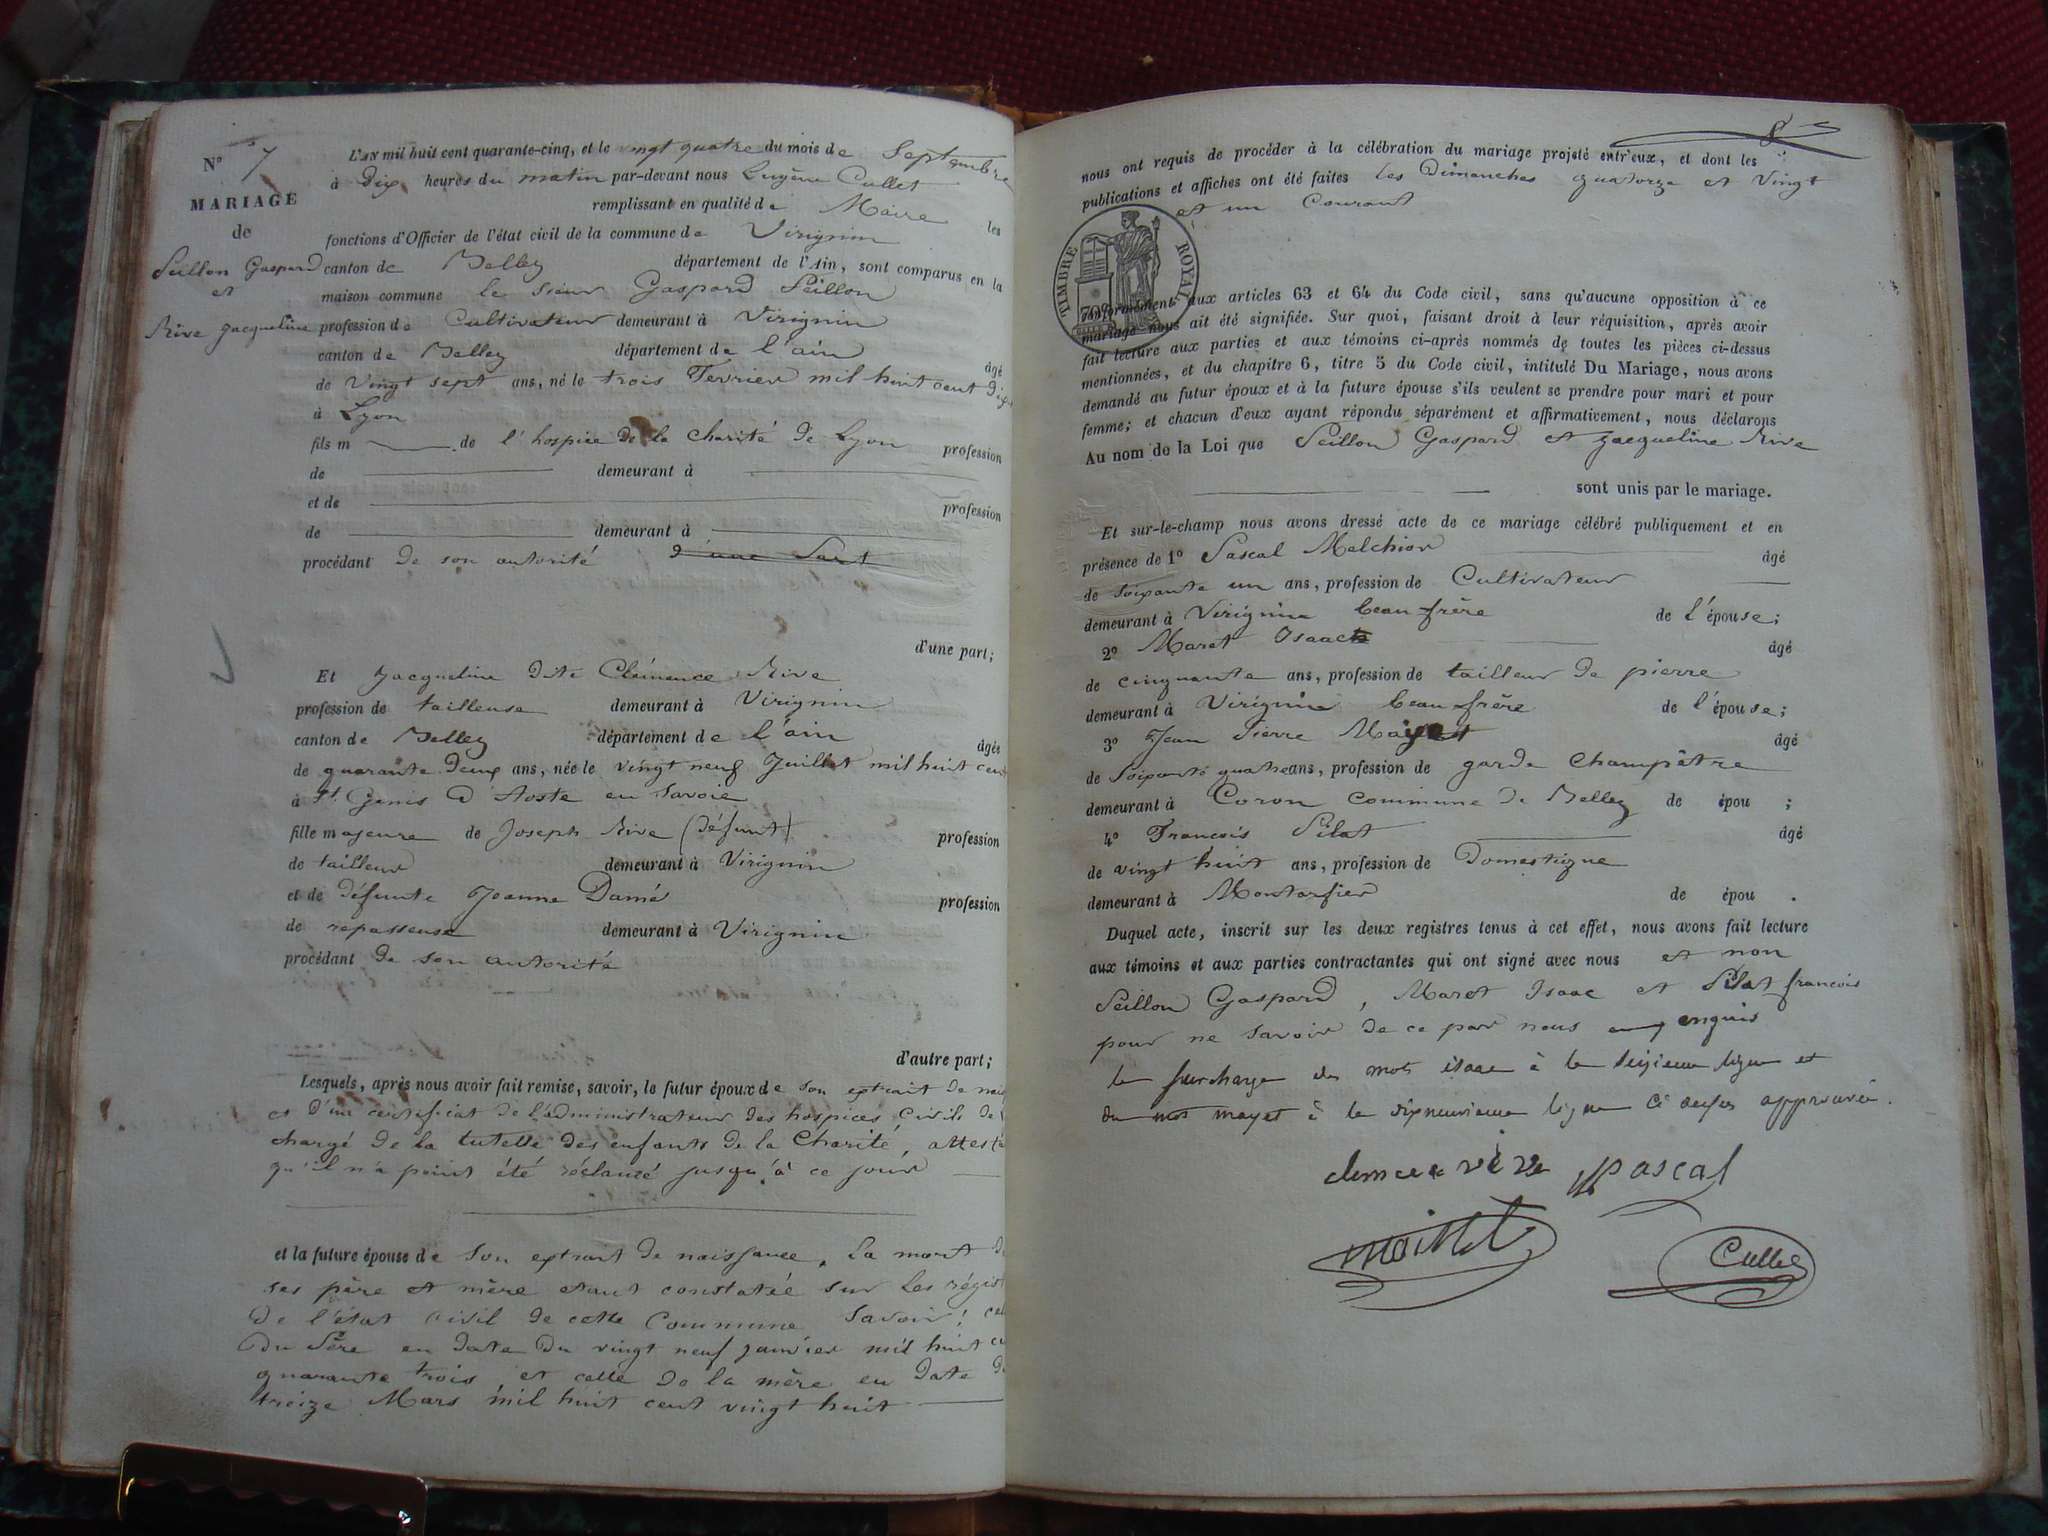 N° 7
MARIAGE
de
Peillon Gaspard
et
Rive Jacqueline
L'AN mil huit cent quarante-cinq, et le vingt quatre du mois de Septembre
à Dix heures du matin par-devant nous Eugène Cullet
remplissant en qualité de Maire les
fonctions d'Officier de l'état civil de la commune de Virignin
canton de Belley département de l'Ain, sont comparus en la
maison commune le sieur Gaspard Peillon
profession de Cultivateur demeurant à Virignin
canton de Belley département de l'ain âgé
de vingt sept ans, né le trois Fevrier mil huit cent dix
à Lyon
fils m de l'hospice de la charité de Lyon profession
de demeurant à
et de profession
de demeurant à
procédant de son autorité d'une Part
d'une part;
Et Jacqueline dite Clémence Rive
profession de tailleuse demeurant à Virignin
canton de Belley département de l'ain âgée
de quarante deux ans, née le vingt neuf Juillet mil huit cent
à St. Genis D'Aoste en Savoie
fille majeure de Joseph Rive (défunt) profession
de tailleur demeurant à Virignin
et de défunte Jeanne Damé profession
de repasseuse demeurant à Virignin
procédant de son autorité
d'autre part;
Lesquels, après nous avoir fait remise, savoir, le futur époux de son extrait de nais
et d'un certificat de l'administrateur des hospices Civils de
chargé de la tutelle des enfants de la Charité, attest
qu'il n'a point été réclamé jusqu'à ce jour
et la future épouse de son extrait de naissance. La mort de
ses père et mère étant constatée sur les régist
De l'état civil de cette Commune Savoir: cel
Du Père en date du vingt neuf janvier mil huit ce
quarante trois, et celle de la mère en date d
treize Mars mil huit cent vingt huit
8
nous ont requis de procéder à la célébration du mariage projeté entr'eux, et dont les
publications et affiches ont été faites les Dimanches quatorze et vingt
et un Courant
TIMBRE ROYAL
70c
conformément aux articles 63 et 64 du Code civil, sans qu'aucune opposition à ce
mariage nous ait été signifiée. Sur quoi, faisant droit à leur réquisition, après avoir
fait lecture aux parties et aux témoins ci-après nommés de toutes les pièces ci-dessus
mentionnées, et du chapitre 6, titre 5 du Code civil, intitulé Du Mariage, nous avons
demandé au futur époux et à la future épouse s'ils veulent se prendre pour mari et pour
femme; et chacun d'eux ayant répondu séparément et affirmativement, nous déclarons
Au nom de la Loi que Peillon Gaspard et Jacqueline Rive
sont unis par le mariage.
Et sur-le-champ nous avons dressé acte de ce mariage célébré publiquement et en
présence de 1° Pascal Melchior âgé
de soixante un ans, profession de Cultivateur
demeurant à Virignin beau-frère de l'épouse;
2° Maret Isaac âgé
de cinquante ans, profession de tailleur de pierre
demeurant à Virignin beau-frère de l'épouse;
3° Jean Pierre Mayet âgé
de Soixante quatre ans, profession de garde Champêtre
demeurant à Coron commune de Belley de épou ;
4° François Pilat âgé
de vingt huit ans, profession de Domestique
demeurant à Montarfier de épou .
Duquel acte, inscrit sur les deux registres tenus à cet effet, nous avons fait lecture
aux témoins et aux parties contractantes qui ont signé avec nous et non
Peillon Gaspard, Maret Isaac et Pilat francois
pour ne savoir de ce par nous enquis
la surcharge du mot isaac à la ligne et
du mot mayet à la ligne Ci dessus approuvée.
clemence rive pascal
Cullet